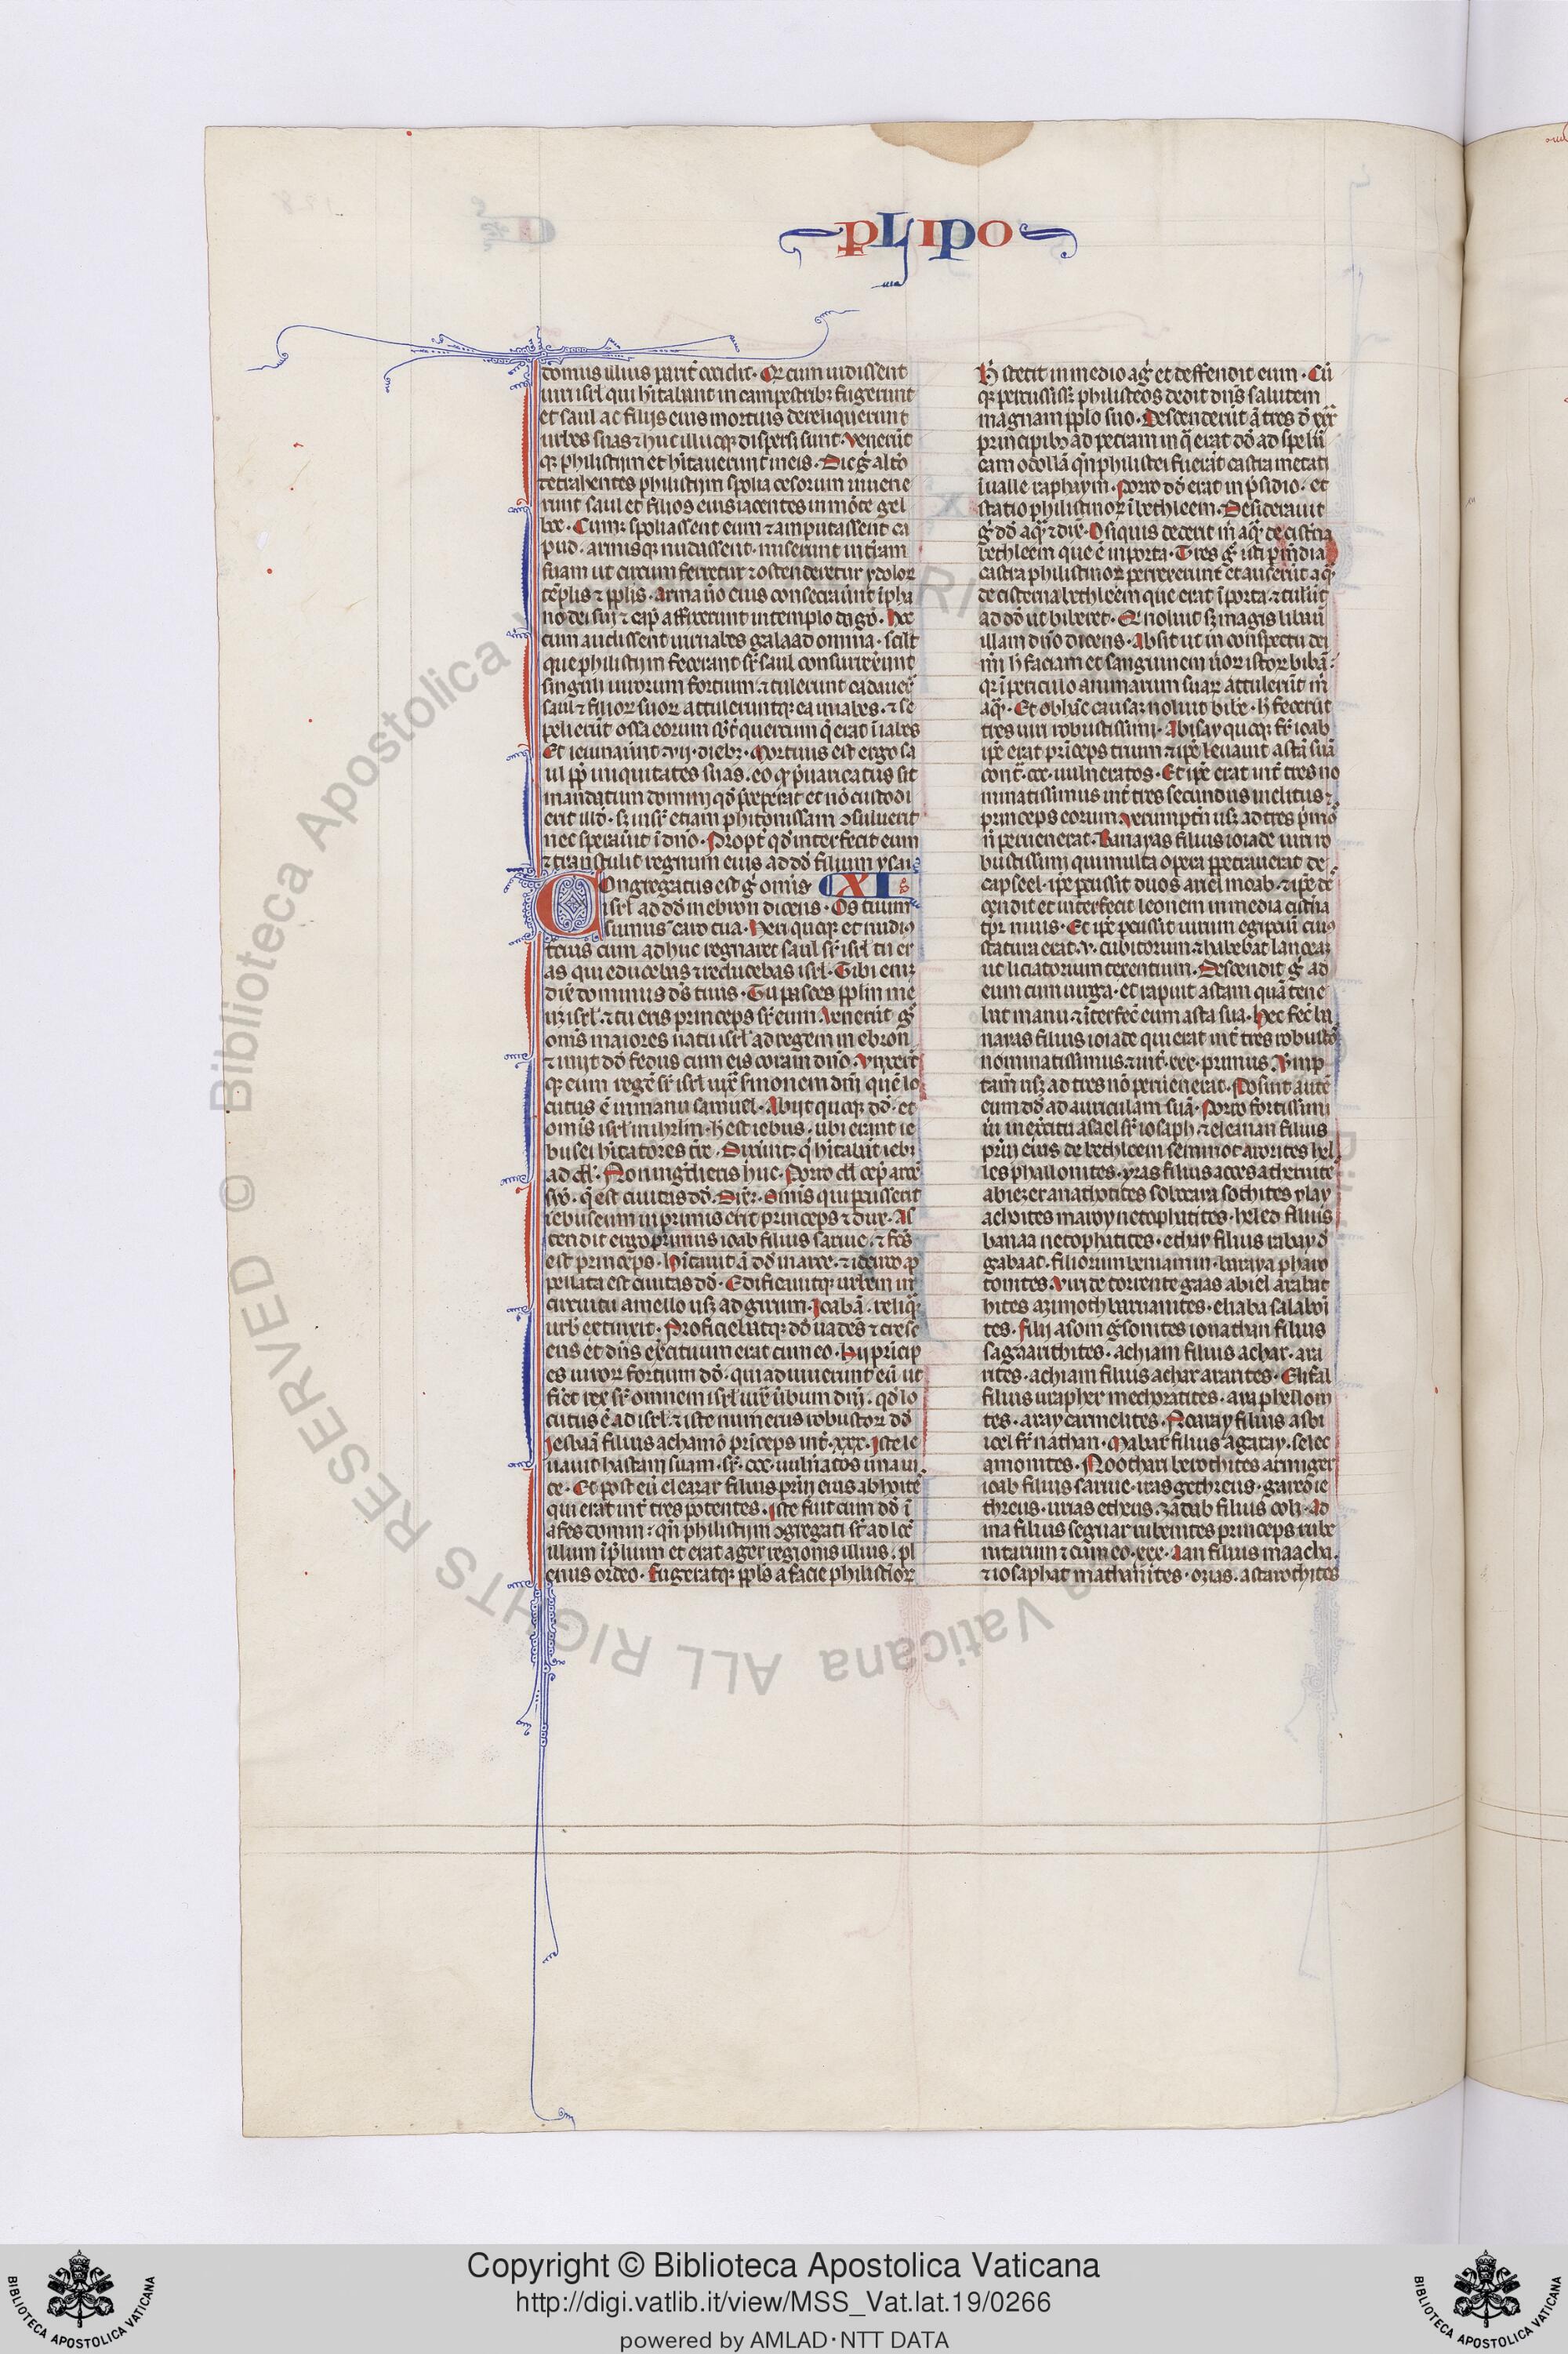 PLIPO
domus illius parit᷑ ɔcidit. Qꝫ cum uidissent
uiri isrl qui h̾itabant in campestribꝫ fugerunt
et saul ac filiis eius mortuis dereliquerunt
urbes suas ⁊ huc illucqꝫ dispersi sunt. Venerūt
qꝫ philistijm et h̾itauerunt in eis. Die g̾ alt̾o
detrahentes philistijm spolia cesorum inuene
runt saul et filios eius iacentes in mōte gel
boe. Cumqꝫ spoliassent eum ⁊ amputassent ca
pud. armisqꝫ nudassent. miserunt in t̾ram
suam ut circumferretur ⁊ ostenderetur ydoloꝝ
tēplis ⁊ pplis. Arma ũo eius consecrau̾unt ī pha
no dei sui ⁊ cap̾ affixerunt in templo dagō. Hoc
cum audissent uiri iabes galaad omnia. scilt
que philistijm fecerant sr̄ saul consurrex̾unt
singuli uirorum fortium. ⁊ tulerunt cadauer̄
saul ⁊ filioꝝ suoꝝ attuleruntqꝫ ea in iabes. ⁊ se
pelierūt ossa eorum sb̄t̾ quercum q̄ erat ī iabes
Et ieiunau̾unt .vij. diebꝫ. Mortuus est ergo sa
ul pp̄ iniquitates suas. eo qꝫ p̄uaricatus sit
mandatum domini qd̄ p̄cep̾at et nō custodi
erit illd̄. sꝫ insr̄ etiam phitonissam ɔsuluerit
nec sperau̾it ī dn̄o. Propt̾ qd̄ interfecit eum
⁊ transtulit regnum eius ad dd̄ filium ysai
Congregatus est g̾ omīs XI
isrl ad dd̄ in ebron dicens. Os tuum
sumus ⁊ caro tua. Heri quoqꝫ et nudiꝰ
tercius cum adhuc regnaret saul sr̄ isrl tu er
as qui educebas ⁊ reducebas isrl. Tibi eniꝫ
dix̄ dominus ds̄ tuus. Tu pasces pplm me
uꝫ isrl. ⁊ tu eris princeps sr̄ eum. Venerūt g̾
omīs maiores natu isrl ad regem in ebron
⁊ inijt dd̄ fedus cum eis coram dn̄o. Vnxer̄t
qꝫ eum regē sr̄ isrl iux̄ s̾monem dn̄i quē lo
cutus ē in manu samuel. Abijt quoqꝫ dd̄. et
omīs isrl in ihrlm. h̾ est iebus. ubi erant ie
busei h̾itatores t̾re. Dixerūtqꝫ q̄ h̾itabāt iebꝫ
ad dd̄. Non ingdieris huc. Porro dd̄ cep̾ arcē
syō. q̄ est ciuitas dd̄. Dixꝫ. Omīs qui ꝑcusserit
iebuseum in primis erit princeps ⁊ dux. As
cendit ergo primus ioab filius saruie. ⁊ fc̄s
est princeps. H̾itauit ā dd̄ in arce. ⁊ idcirco ap
pellata est ciuitas dd̄. Edificauitqꝫ urbem in
circuitu a mello usqꝫ ad girum. Ioab ā reliqꝫ
urb̾ extruxit. Proficiebatqꝫ dd̄ uadēs ⁊ cresc
ens et dn̄s ex̾cituum erat cum eo. Hij princip
es uiroꝝ fortium dd̄. qui adiuuerunt eū ut
fi̾et rex sr̄ omnem isrl iux̄ u̾bum dn̄i. qd̄ lo
cutus ē ad isrl. ⁊ iste numerus robustoꝝ dd̄
Iesbaā filius achamō princeps int̾ .xxx. Iste le
uauit hastam suam. sr̄ .ccc. uuln̾atos una ui
ce. Et post eū eleazar filius pr̄ui eius ahoite
qui erat int̾ tres potentes. Iste fuit cum dd̄ ī
afesdomin. qn̄ philistijm ɔgregati st̄ ad locū
illum ī p̄lium et erat ager regionis illius. pl
enus ordeo. Fugeratqꝫ ppls a facie philistinoꝝ
H̾ stetit in medio agi̾ et deffendit eum. Cū
qꝫ percussissꝫ philisteos dedit dn̄s salutem
magnam pplo suo. Descenderūt ā tres d̄ xxx
principibꝫ ad petram in q̄ erat dd̄ ad spelū
cam odollā qn̄ philistei fuerāt castra metati
ī ualle raphaym. Porro dd̄ erat in p̄sidio. et
statio philistinoꝝ ī bethleem. Desiderauit
g̾ dd̄ aqꝫ ⁊ dix̄. O siquis dederit m̄ aqꝫ de cist̾na
bethleem que ē in porta. Tres g̾ isti ꝑ media
castra philistinoꝝ perrexerunt et auserūt aqꝫ
de cisterna bethleem que erat ī porta. ⁊ tulūt
ad dd̄ ut biberet. Qꝫ noluit sꝫ magis libauit
illam dn̄o dicens. Absit ut in conspectu dei
mī h̾ faciam et sanguinem uiroꝝ istoꝝ bibā.
qꝫ ī periculo animarum suaꝝ attulerūt m̄
aqꝫ. Et ob hāc causaꝫ noluit bibe. h̾ fecerūt
tres uiri robustissimi. Abisay quoqꝫ fr̄ ioab
ip̄e erat prīceps trium ⁊ ip̄e leuauit astā suā
cont̾ .ccc. uulneratos. Et ip̄e erat int̾ tres no
minatissimus int̾ tres secundus inclitus ⁊
princeps eorum. Verumptn̄ usqꝫ ad tres p̾mo
n̄ peruenerat. Banayas filius ioiade uiri ro
bustissimi qui multa opera ꝑpetrauerat de
capseel. ip̄e ꝑcussit duos ariel moab. ⁊ ip̄e de
scendit et interfecit leonem in media cist̾na
tp̄r niuis. Et ip̄e ꝑcussit uirum egiptiū cuiꝰ
statura erat .v. cubitorum. ⁊ habebat lanceaꝫ
ut liciatorium texentium. Descendit g̾ ad
eum cum uirga. et rapuit astam quā tene
bat manu ⁊ īterfec̄ eum asta sua. Hec fec̄ ba
naias filius ioiade qui erat int̾ tres robustos
nominatissimus ⁊ int̾ .xxx. primus. Verump
tam̄ usqꝫ ad tres nō peruenerat. Posuit autē
eum dd̄ ad auriculam suā. Porro fortissimi
uiri in ex̾citu asael fr̄ ioaph. ⁊ eleanan filius
pr̄ui eius de bethleem semmoc arorites hel
les phallonites. yras filius acces athecuite
abiezer anathotites sobocara sochites ylay
achoites maroy netophatites. heled filius
banaa netophatites. ethay filius rabay d̄
gabaat. filiorum beniamin. banaya pharo
tonites. Viri de torrente gaas abiel arabat
hites azimoth baruanites. eliaba salaboi
tes. filij asom g̾sonites ionathan filius
sagaarithites. achiam filius achar. ara
rites. achiam filius achar ararites. Elifal
filius ur apher mechoratites. ara phellon
tes. aray carmelites. Noaray filius asbi
ioel fr̄ nathan. Mabar filius agaray. selec
amonites. Noothari berothites armiger
ioab filius saruie. iras gethreus. gareb ie
threus. urias etheus. zabab filius ooli. Ad
ina filius seguar rubenites princeps rube
nitarum ⁊ cum eo .xxx. Aan filius maacha.
⁊ iosaphat mathanites. ozias. astarothites
Copyright © Biblioteca Apostolica Vaticana
http://digi.vatlib.it/view/MSS_Vat.lat.19/0266
powered by AMLAD·NTT DATA
BIBLIOTECA APOSTOLICA VATICANA
BIBLIOTECA APOSTOLICA VATICANA
© Biblioteca Apostolica Vaticana ALL RIGHTS RESERVED